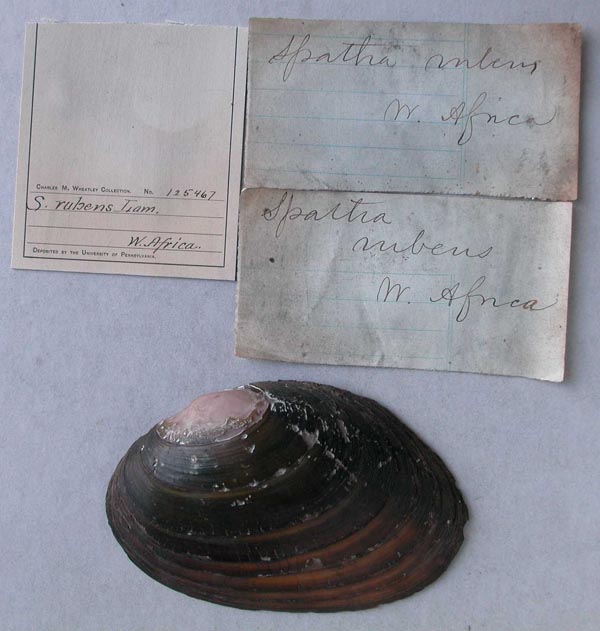 Charles M. Wheatley Collection. No. 125467
S. rubens Lam.
W. Africa.
Deposited by the University of Pennsylvania.
Spatha rubens
W. Africa
Spatha
rubens
W. Africa